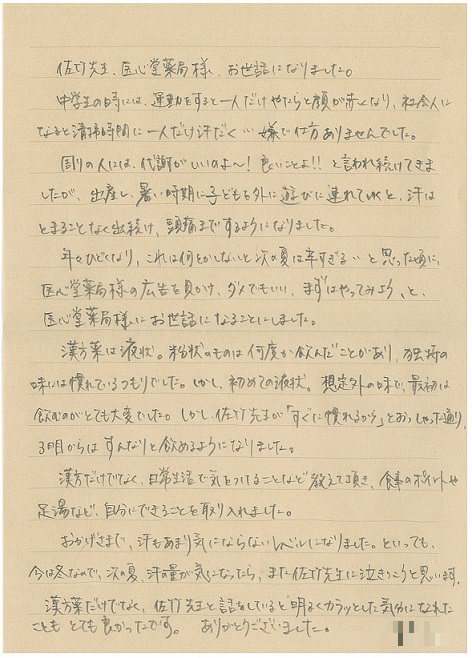 佐竹先生、医心堂薬局様、お世話になりました。
中学生の時には、運動をすると一人だけやたらと顔が赤くなり、社会人に
なると清掃時間に一人だけ汗だく… 嫌で仕方ありませんでした。
周りの人には、代謝がいいのよ〜! 良いことよ!! と言われ続けてきま
したが、出産し、暑い時期に子どもを外に遊びに連れていくと、汗は
とまることなく出続け、頭痛までするようになりました。
年々ひどくなり、これは何とかしないと次の夏は辛すぎる… と思った頃に、
医心堂薬局様の広告を見かけ、ダメでもいい、まずはやってみよう、と、
医心堂薬局様にお世話になることにしました。
漢方薬は液状。粉状のものは何度か飲んだことがあり、独特の
味には慣れているつもりでした。しかし、初めての液状。想定外の味で、最初は
飲むのがとても大変でした。しかし、佐竹先生が「すぐに慣れるから」とおっしゃった通り、
3日目からはすんなりと飲めるようになりました。
漢方だけでなく、日常生活で気をつけることなど教えて頂き、食事のポイントや
足湯など、自分にできることを取り入れました。
おかげさまで、汗もあまり気にならないレベルになりました。といっても、
今は冬なので、次の夏、汗の量が気になったら、また佐竹先生に泣きつこうと思います。
漢方薬だけでなく、佐竹先生と話をしていると明るくカラッとした気分になれた
こともとても良かったです。 ありがとうございました。